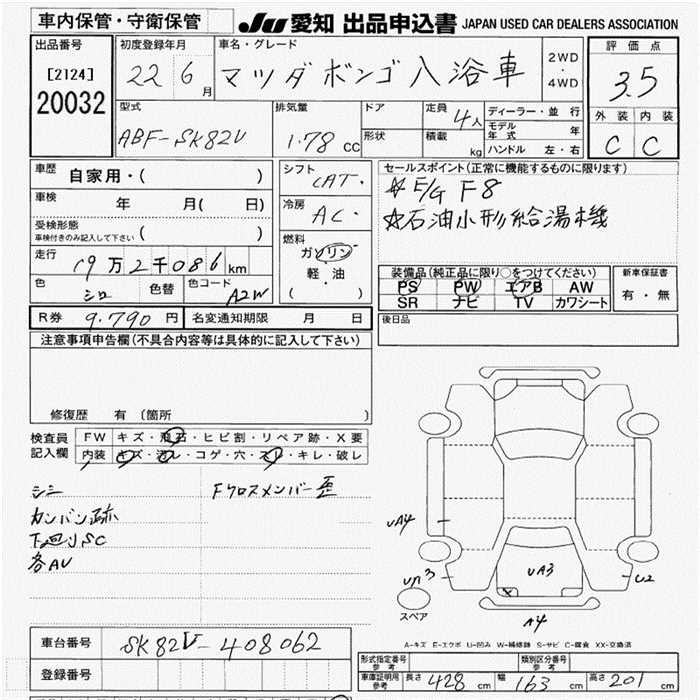 車内保管・守衛保管
JU 愛知 出品申込書 JAPAN USED CAR DEALERS ASSOCIATION
出品番号
[2124]
20032
初度登録年月
22 6 月
車名・グレード
マツダボンゴ入浴車
2WD
・
4WD
評価点
3.5
外装 内装
C C
型式
ABF-SK82V
排気量
1.78 CC
ドア
形状
定員 4人
積載 kg
ディーラー・並行
モデル年式 年
ハンドル 左・右
車歴
自家用・( )
車検 年 月( 日)
受検形態
車検付きのみ記入して下さい ( )
走行
19万2千086km
色 シロ 色替 色コード A2W
シフト
CAT.
冷房
AC.
燃料
ガソリン
軽・油
( )
セールスポイント(正常に機能するものに限ります)
☆E/G F8
☆石油小形給湯機
装備品(純正品に限り○をつけてください)
PS PW エアB AW
SR ナビ TV カワシート
新車保証書
有・無
R券 9.790 円 名変通知期限 月 日
後日品
注意事項申告欄(不具合内容等は具体的に記入して下さい)
修復歴 有(箇所 )
検査員
記入欄
FW キズ・飛石・ヒビ割・リペア跡・X要
内装 キズ・汚レ・コゲ・穴・スレ・キレ・破レ
シミ
カンバン跡
下廻りSC
各AU
Fクロスメンバー歪
UA4
UA3
UA3
U2
A4
スペア
A-キズ E-エクボ U-凹み W-補修跡 S-サビ C-腐食 XX-交換済
車台番号 SK82V-408062
登録番号
形式指定番号
参考
類別区分番号
参考
車庫証明用
参考
長さ 428 cm 幅 163 cm 高さ 201 cm